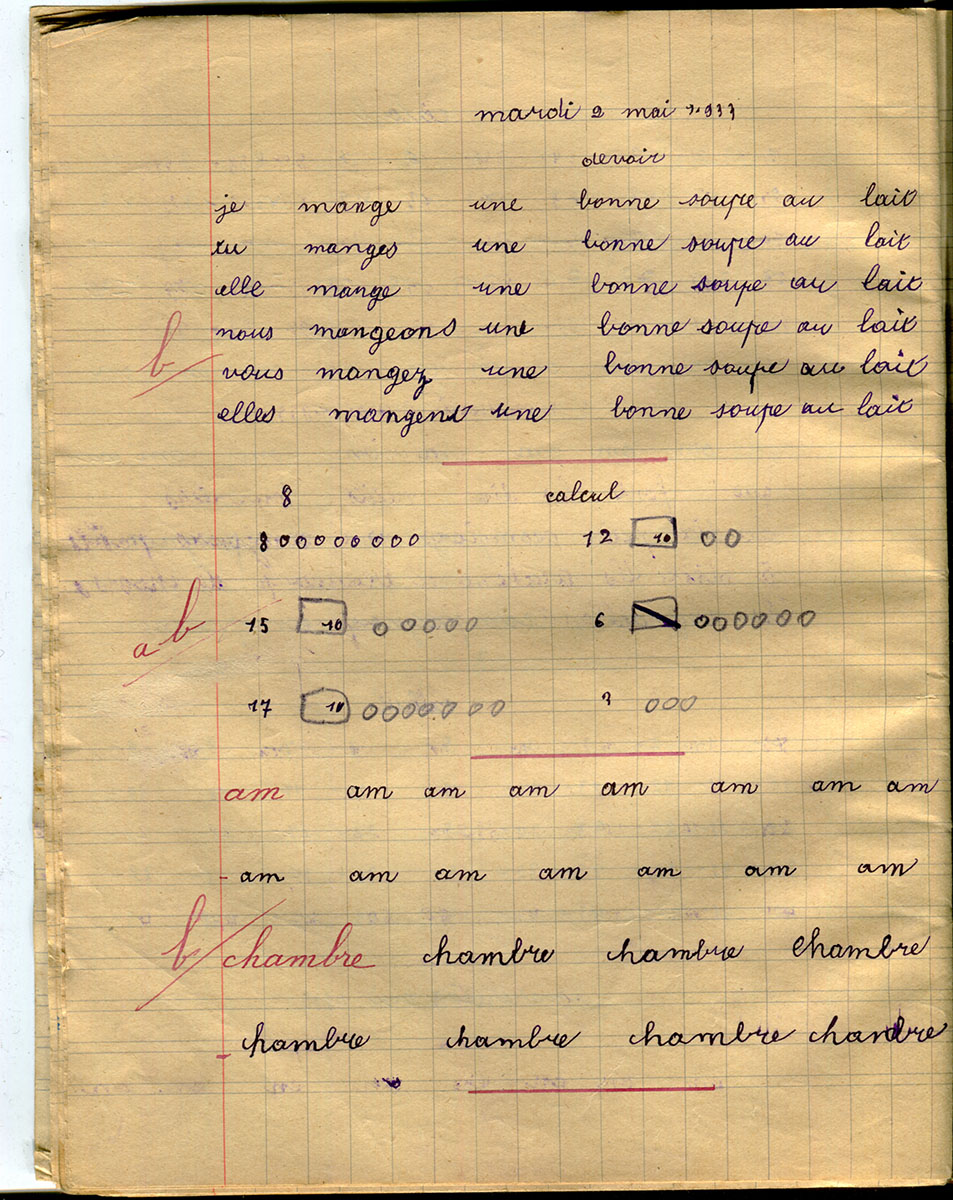 mardi 2 mai 1933
devoir
je mange une bonne soupe au lait
tu manges une bonne soupe au lait
elle mange une bonne soupe au lait
nous mangeons une bonne soupe au lait
b vous mangez une bonne soupe au lait
elles mangent une bonne soupe au lait
8 calcul
8 ooooooooo 12 10 oo
ab 15 10 ooooo 6 oooooo
17 10 ooooooo 3 ooo
am am am am am am am am
am am am am am am am
b chambre chambre chambre chambre
chambre chambre chambre chandre